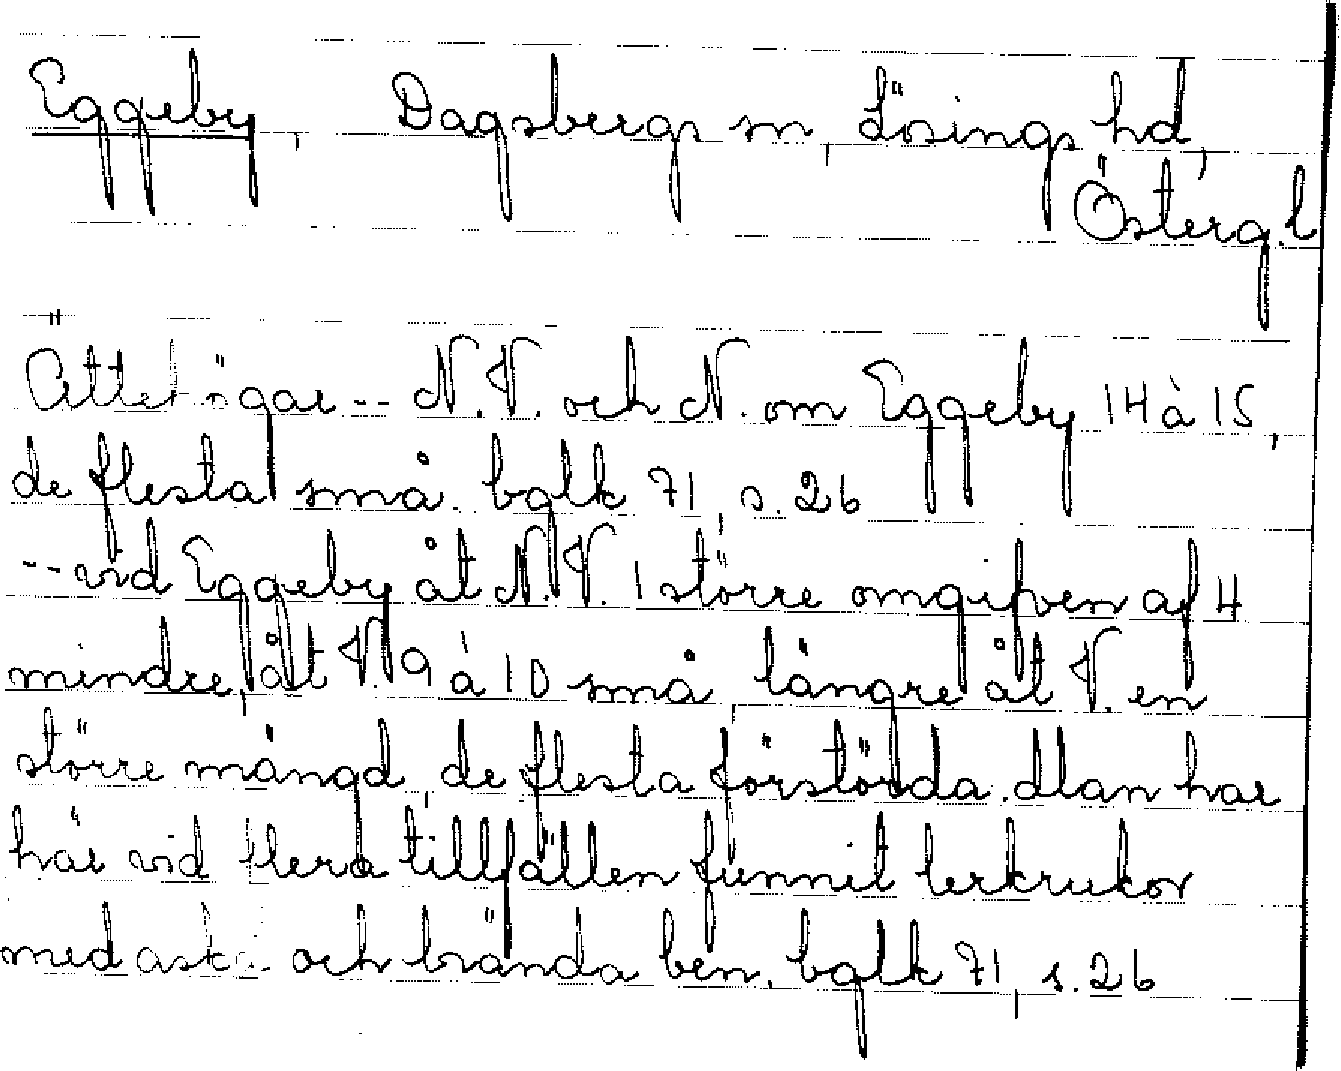 Eggeby, Dagsbergs sn, Lösings hd,
Österg.l
Ättehögar -- N.V. och N. om Eggeby 14 à 15,
de flesta små. bglk 71, s. 26
-- vid Eggeby åt N.V. 1 större omgifven af 4
mindre, åt V. 9 à 10 små längre åt V. en
större mängd, de flesta förstörda. Man har
här vid flera tillfällen funnit lerkrukor
med aska och brända ben. bglk 71, s. 26